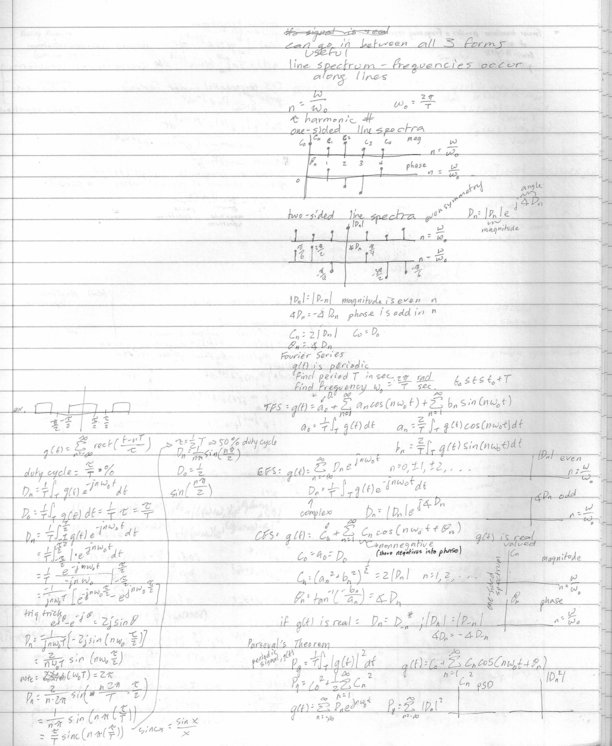 its signal is real
can go in between all 3 forms
useful
line spectrum - frequencies occur
along lines
n = ω/ω₀    ω₀ = 2π/T
↑ harmonic #
one-sided line spectra
mag
n = ω/ω₀
0 1 2 3 4
phase
n = ω/ω₀
two-sided line spectra
even symmetry
|Dn|
n = ω/ω₀
∡Dn
n = ω/ω₀
Dn = |Dn| e^j∡Dn
angle
magnitude
|Dn| = |D-n| magnitude is even n
∡Dn = -∡D-n phase is odd in n
Cn = 2|Dn|    C₀ = D₀
θn = ∡Dn
Fourier Series
g(t) is periodic
find period T in sec.
find frequency ω₀ = 2π/T rad/sec.    t₀ ≤ t ≤ t₀+T
TFS: g(t) = a₀ + ∞Σn=1 an cos(nω₀t) + ∞Σn=1 bn sin(nω₀t)
a₀ = 1/T ∫T g(t)dt    an = 2/T ∫T g(t)cos(nω₀t)dt
bn = 2/T ∫T g(t)sin(nω₀t)dt
EFS: g(t) = ∞Σn=-∞ Dn e^jnω₀t    n=0,±1,±2,...
Dn = 1/T ∫T g(t)e^-jnω₀t dt
↑
complex    Dn = |Dn| e^j∡Dn
|Dn| even
n = ω/ω₀
∡Dn odd
n = ω/ω₀
CFS: g(t) = C₀ + ∞Σn=1 Cn cos(nω₀t + θn)    g(t) is real valued
nonnegative
(throw negatives into phase)
C₀ = a₀ = D₀
Cn = (an² + bn²)^½ = 2|Dn|    n=1,2,...
θn = tan⁻¹(-bn/an) = ∡Dn
one-sided spectrum
Cn
magnitude
n = ω/ω₀
θn
phase
n = ω/ω₀
if g(t) is real = Dn = D-n* ; |Dn| = |D-n|
∡Dn = -∡D-n
Parseval's Theorem
periodic signal g(t)
Pg = 1/T ∫T |g(t)|² dt    g(t) = C₀ + ∞Σn=1 Cn cos(nω₀t + θn)
Pg = C₀² + 1/2 ∞Σn=1 Cn²
g(t) = ∞Σn=-∞ Dn e^jnω₀t    Pg = ∞Σn=-∞ |Dn|²
Cn² PSD
|Dn²|
g(t) = ∞Σn=-∞ rect(t-nT/τ)
duty cycle = τ/T · %
Dn = 1/T ∫T g(t)e^-jnω₀t dt
D₀ = 1/T ∫T g(t) dt = 1/T · τ = τ/T
Dn = 1/T ∫ g(t)e^-jnω₀t dt
= 1/T ∫ 1·e^-jnω₀t dt
= 1/T e^-jnω₀t / -jnω₀
= -1/jnω₀T [e^-jnω₀τ/2 - e^jnω₀τ/2]
trig trick
e^jθ - e^-jθ = 2j sin θ
Dn = -1/jnω₀T [-2j sin(nω₀ τ/2)]
= 2/nω₀T sin(nω₀ τ/2)
note = (ω₀T) = 2π
Dn = 2/n·2π sin(n 2π/T · τ/2)
= 1/nπ sin(nπ(τ/T))
= τ/T sinc(nπ(τ/T))    sinc x = sin x/x
τ = 1/2 T ⇒ 50% duty cycle
Dn = 1/nπ sin(nπ/2)
D₀ = 1/2
sin(nπ/2)